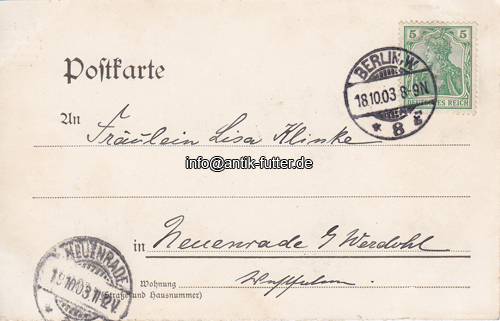 5 5
DEUTSCHES REICH
BERLIN, W.
18.10.03 8-9N
* 8 g
Postkarte
An Fräulein Lisa Klinke
info@antik-futter.de
in Neuenrade b/ Werdohl
Westfalen.
Wohnung
(Straße und Hausnummer)
NEUENRADE
19.10.03 11-12V.